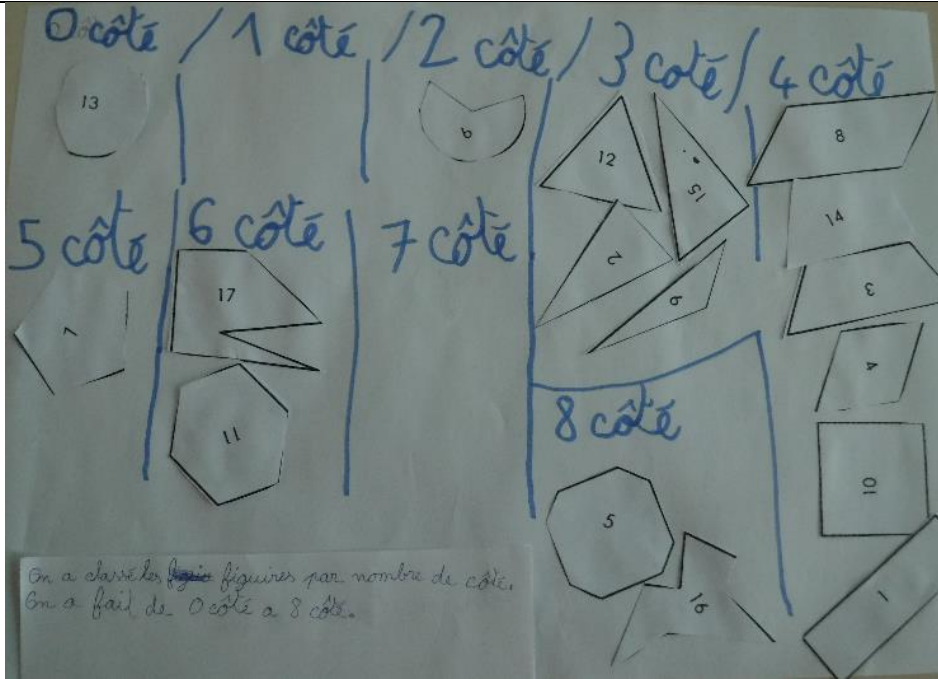 0 côté / 1 côté / 2 côté / 3 coté / 4 côté
13
6
12
15
8
14
2
9
3
4
10
1
5 côté
6 côté
7 côté
7
17
11
8 côté
5
16
On a classé les figuires par nombre de côté.
On a fail de 0 côté a 8 côté.